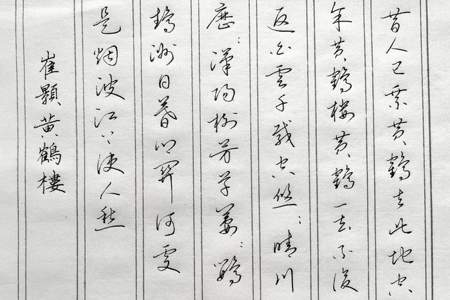 昔人已乘黄鶴去此地空
余黄鶴樓黄鶴一去不復
返白雲千載空悠々晴川
歷々漢陽樹芳草萋々鸚
鵡洲日暮鄉關何處
是烟波江上使人愁
崔顥黄鶴樓